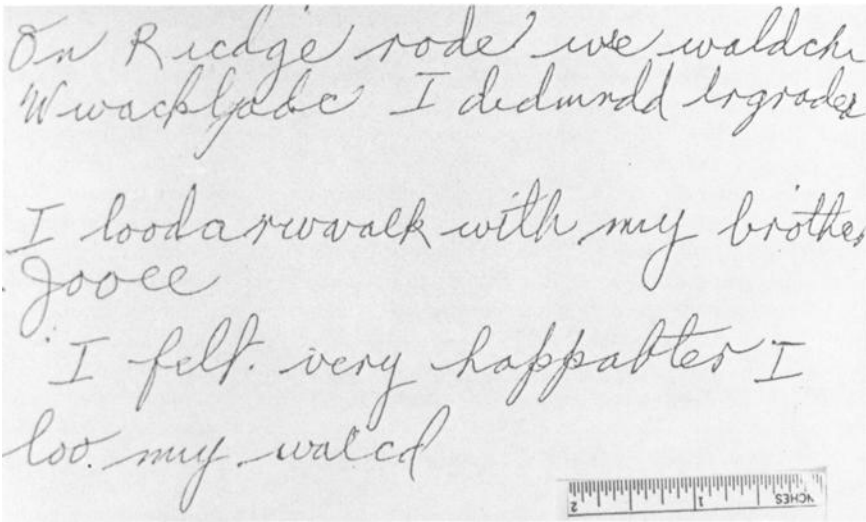 On Ricdge rode we waldch
Wwackljabc I didmrdd lrgrades
I loodarwwalk with my brother
Jooee
I felt. very happabter I
loo. my walcd
2 1 INCHES